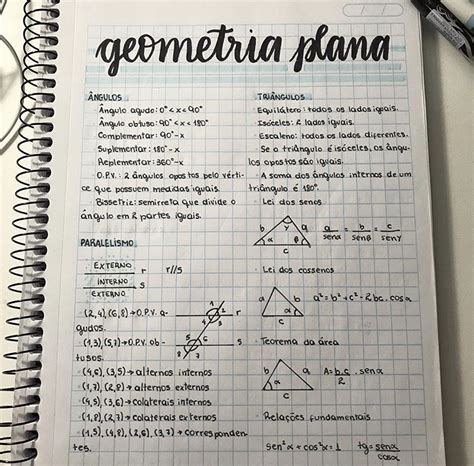 geometria plana
ÂNGULOS
Ângulo agudo: 0° < x < 90°
Ângulo obtuso: 90° < x < 180°
Complementar: 90° - x
Suplementar: 180° - x
Replementar: 360° - x
O.P.V.: 2 ângulos opostos pelo vérti-
ce que possuem medidas iguais.
Bissetriz: semirreta que divide o
ângulo em 2 partes iguais.
PARALELISMO
EXTERNO r r//s
INTERNO s
EXTERNO
(2,4),(6,8) → O.P.V. a-
gudos.
(1,3),(5,7) → O.P.V. ob-
tusos.
1 2 r
4 3
5 6 s
8 7
(4,6),(3,5) → alternos internos
(1,7),(2,8) → alternos externos
(4,5),(3,6) → colaterais internos
(1,8),(2,7) → colaterais externos
(1,5),(4,8),(2,6),(3,7) → corresponden-
tes.
TRIÂNGULOS
Equilátero: todos os lados iguais.
Isóceles: 2 lados iguais.
Escaleno: todos os lados diferentes.
Se o triângulo é isóceles, os ângu-
los opostos são iguais.
A soma dos ângulos internos de um
triângulo é 180°.
Lei dos senos
b γ a α β c
a/senα = b/senβ = c/senγ
Lei dos cossenos
a b α c
a² = b² + c² - 2bc . cosα
Teorema da área
b a α c
A = b.c/2 . senα
Relações fundamentais
sen²α + cos²x = 1 tg = senα/cosα